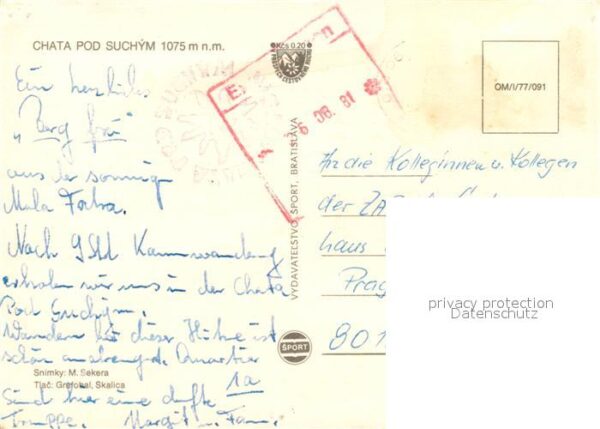 CHATA POD SUCHÝM 1075 m n. m.
Ein herzliches
"Berg frei"
aus der sonnigen
Mala Fatra.
Nach 9 Std Kammwanderung
erholen wir uns in der Chata
Pod Suchým.
Wandern bei dieser Hitze ist
schön anstrengend. Quartier
1a
Sind hier eine dufte
Truppe. Margit u. Fam.
Snímky: M. Sekera
Tlač: Grafobal, Skalica
Kčs 0,20
6 08. 81
VYDAVATEĽSTVO ŠPORT, BRATISLAVA
ŠPORT
OM/I/77/091
An die Kolleginnen u. Kollegen
der
haus
Prag
801
privacy protection
Datenschutz